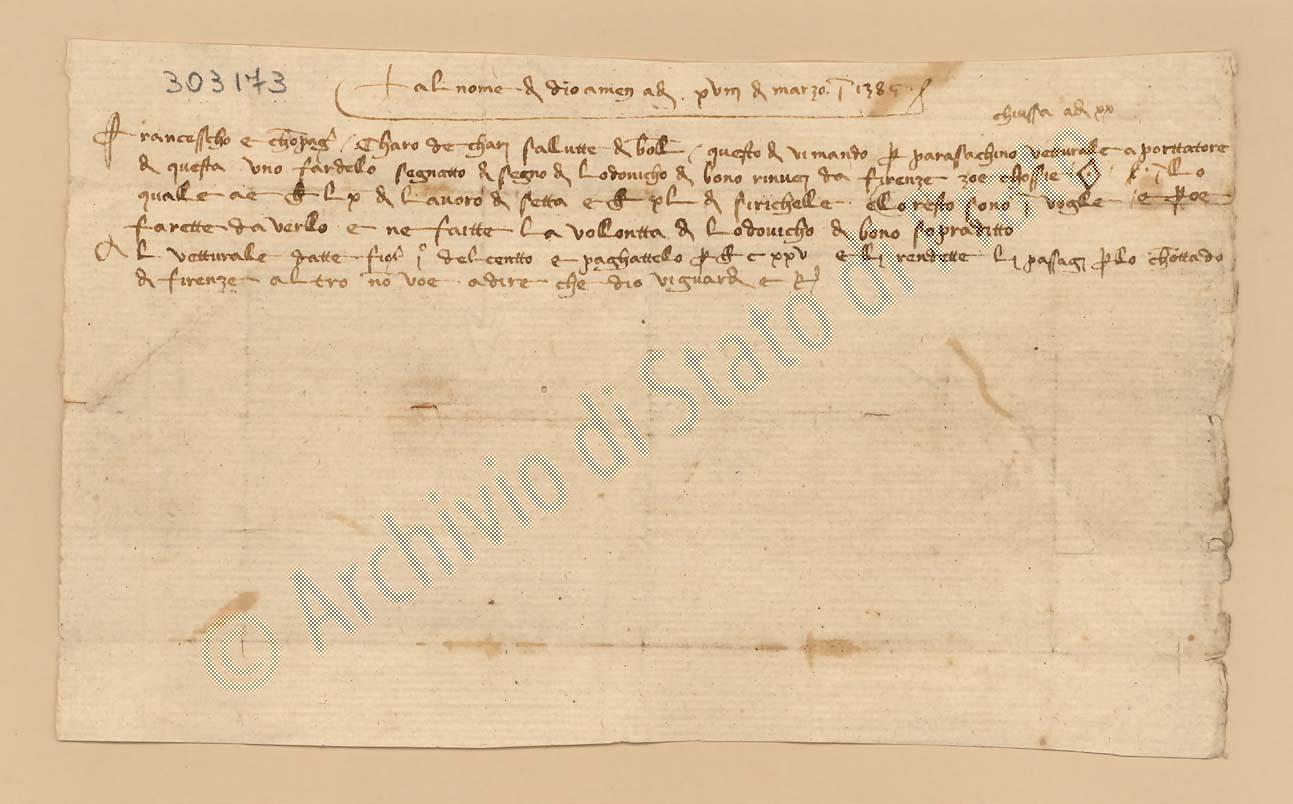 303173
+ al nome d dio amen ad xviii d marzo 1385
chiussa ad xx
Francesscho e chonpag Charo de Chari sallutte d boll questo d vi mando per parasachino vetturale aporttatore
d questa uno fardello segnatto d segno d Lodovicho d bono rinuci da firenze zoe estossie illo
qualle ae £ Lx d Lavoro d setta e £ xL d sirichelle ello resto sono i voglie e
farette daverllo e ne faitte la vollontta d Lodovicho d bono sopraditto
Al vetturale datte fior i del centto e paghattelo per £ c xxv e li rendette li passagi per lo chottado
d firenze altro no voe a dire che dio vi guard e
© Archivio di Stato di